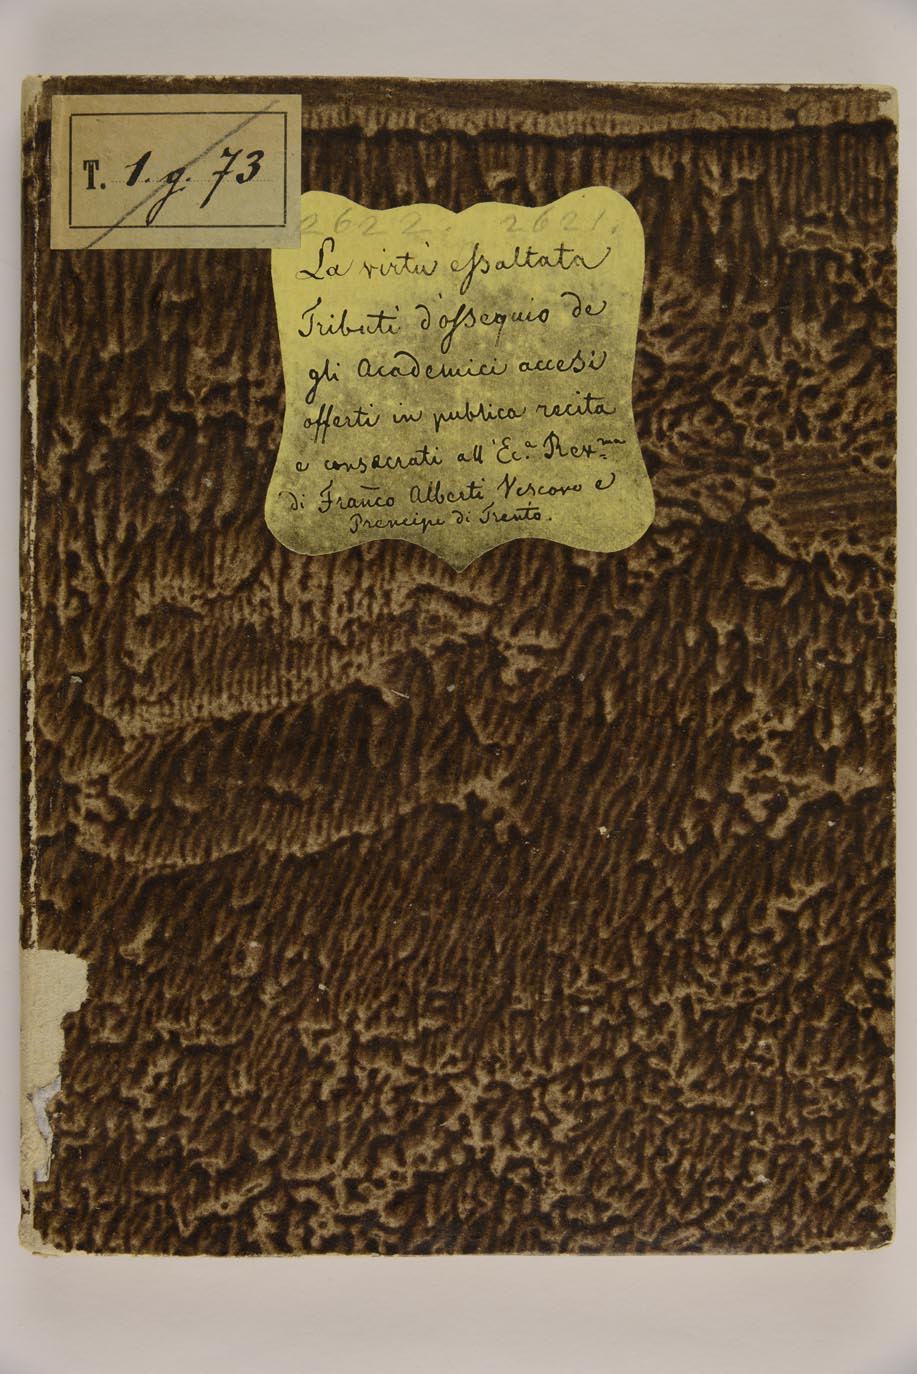 T. 1. g. 73
2622. 2621.
La virtù essaltata
Tributi d'ossequio de
gli Academici accesi
offerti in publica recita
e consacrati all' Ec.ª Rev.ma
di Franco Alberti Vescovo e
Prencipe di Trento.